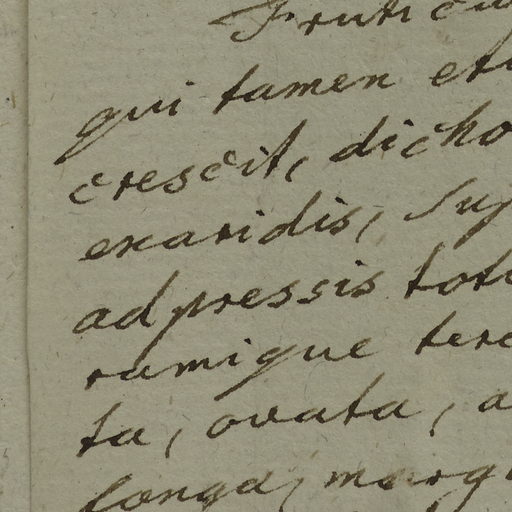 Fruticu
qui tamen et
crescit, dicho
exaridis, sup
adpressis tot
ramique tere
ta, ovata, a
longa, marg